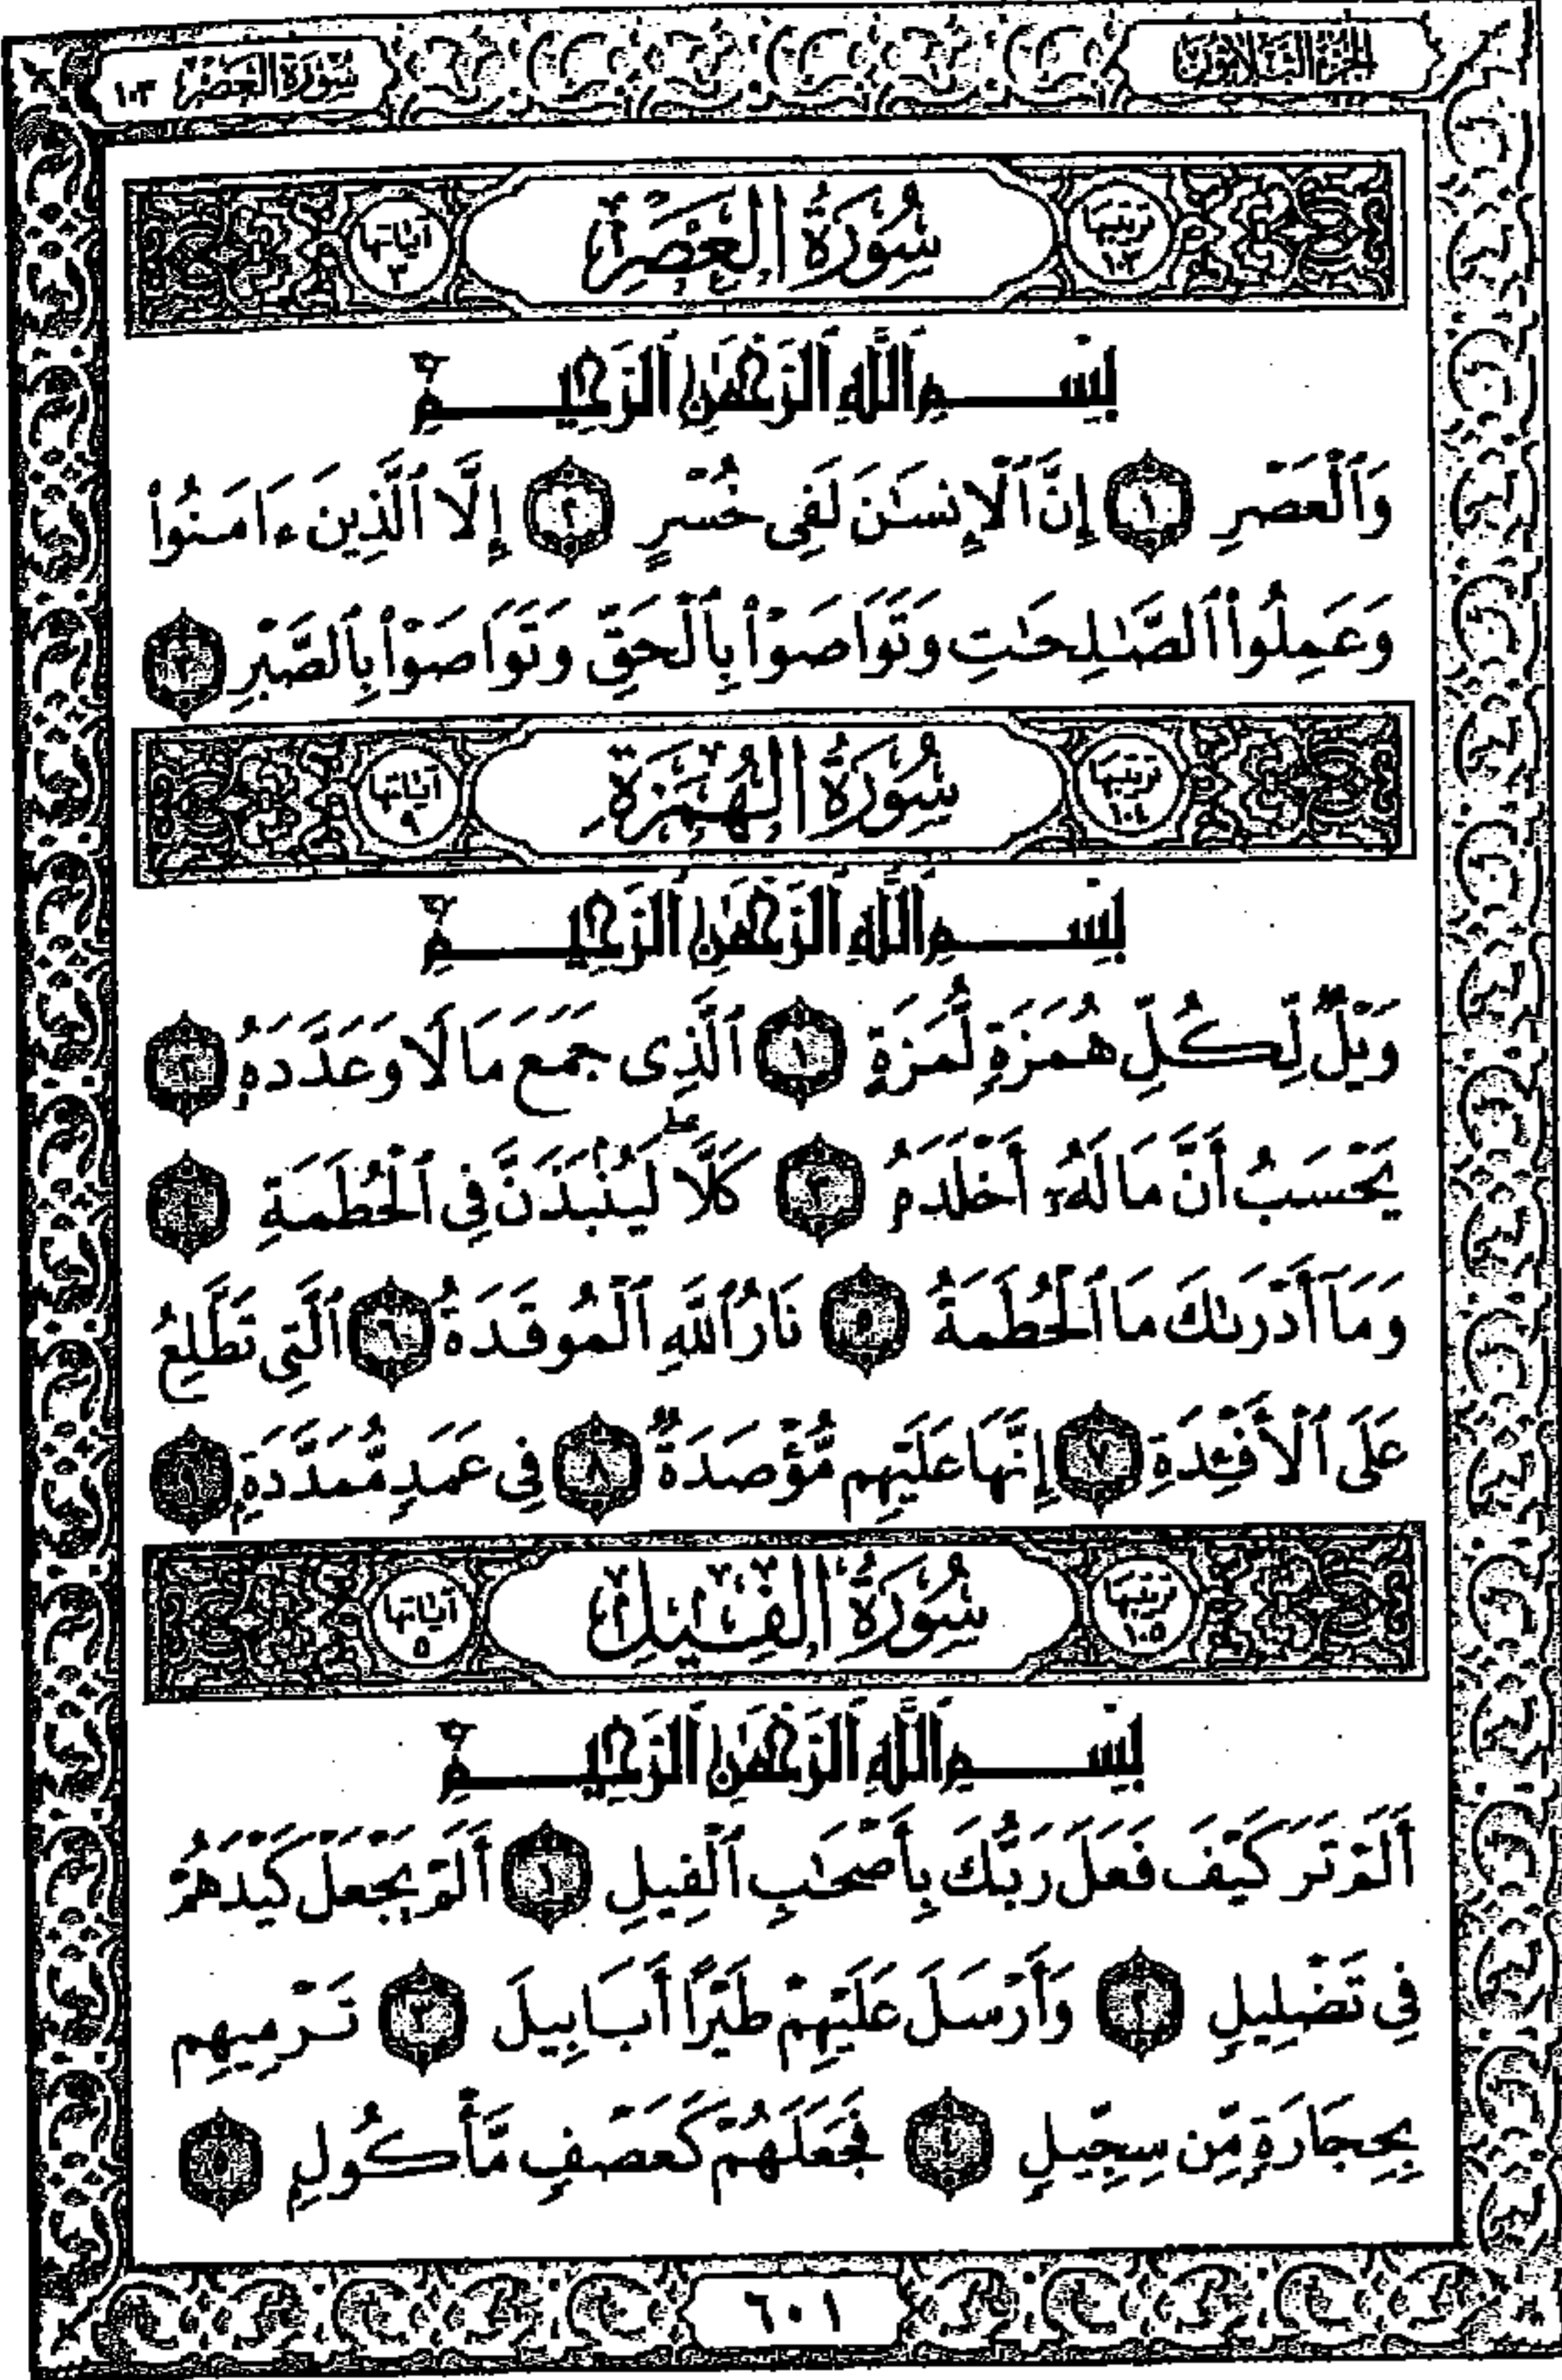 الجزء الثلاثون سورة العصر ١٠٣
ترتيبها ١٠٣ سُورَةُ الْعَصْرِ آياتها ٣
بِسْمِ ٱللَّهِ ٱلرَّحْمَٰنِ ٱلرَّحِيمِ
وَٱلْعَصْرِ ١ إِنَّ ٱلْإِنسَٰنَ لَفِى خُسْرٍ ٢ إِلَّا ٱلَّذِينَ ءَامَنُوا۟
وَعَمِلُوا۟ ٱلصَّٰلِحَٰتِ وَتَوَاصَوْا۟ بِٱلْحَقِّ وَتَوَاصَوْا۟ بِٱلصَّبْرِ ٣
ترتيبها ١٠٤ سُورَةُ الْهُمَزَةِ آياتها ٩
بِسْمِ ٱللَّهِ ٱلرَّحْمَٰنِ ٱلرَّحِيمِ
وَيْلٌ لِّكُلِّ هُمَزَةٍ لُّمَزَةٍ ١ ٱلَّذِى جَمَعَ مَالًا وَعَدَّدَهُۥ ٢
يَحْسَبُ أَنَّ مَالَهُۥٓ أَخْلَدَهُۥ ٣ كَلَّا ۖ لَيُنۢبَذَنَّ فِى ٱلْحُطَمَةِ ٤
وَمَآ أَدْرَىٰكَ مَا ٱلْحُطَمَةُ ٥ نَارُ ٱللَّهِ ٱلْمُوقَدَةُ ٦ ٱلَّتِى تَطَّلِعُ
عَلَى ٱلْأَفْـِٔدَةِ ٧ إِنَّهَا عَلَيْهِم مُّؤْصَدَةٌ ٨ فِى عَمَدٍ مُّمَدَّدَةٍۭ ٩
ترتيبها ١٠٥ سُورَةُ الْفِيلِ آياتها ٥
بِسْمِ ٱللَّهِ ٱلرَّحْمَٰنِ ٱلرَّحِيمِ
أَلَمْ تَرَ كَيْفَ فَعَلَ رَبُّكَ بِأَصْحَٰبِ ٱلْفِيلِ ١ أَلَمْ يَجْعَلْ كَيْدَهُمْ
فِى تَضْلِيلٍ ٢ وَأَرْسَلَ عَلَيْهِمْ طَيْرًا أَبَابِيلَ ٣ تَرْمِيهِم
بِحِجَارَةٍ مِّن سِجِّيلٍ ٤ فَجَعَلَهُمْ كَعَصْفٍ مَّأْكُولٍۭ ٥
٦٠١